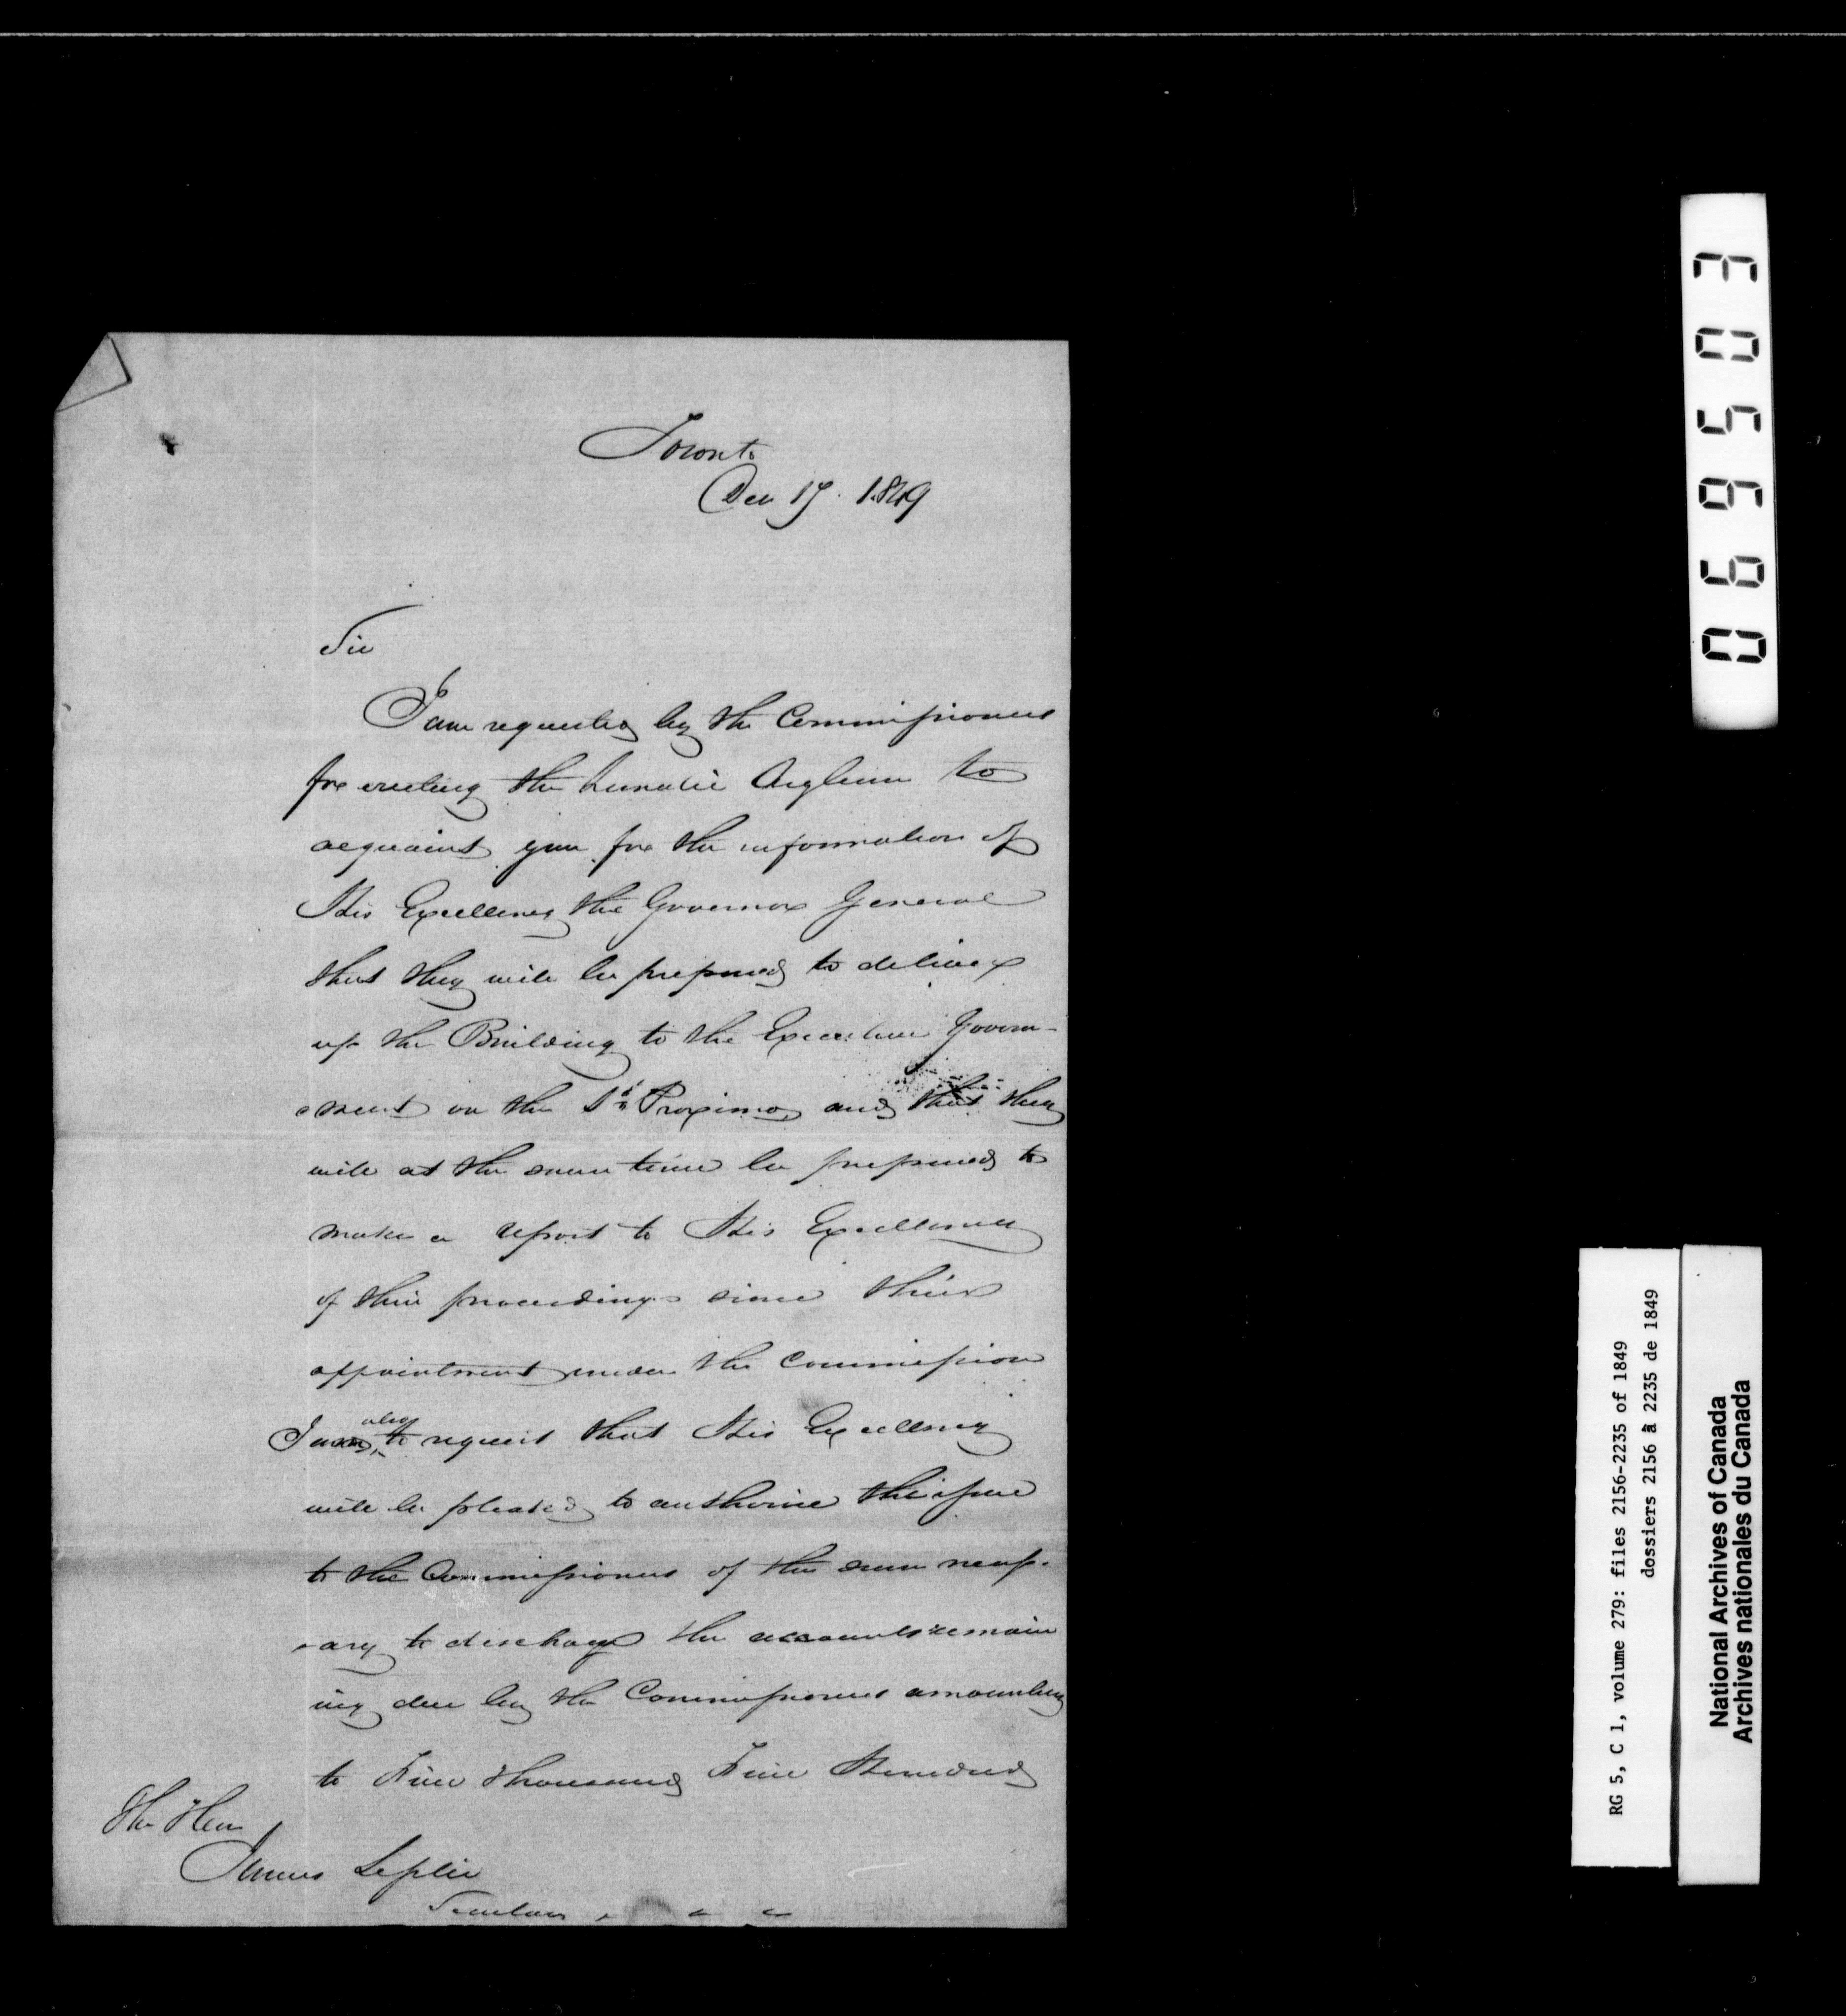 Toronto
Dec 17. 1849
Sir
I am requested by the Commissioners
for erecting the Lunatic Asylum to
acquaint you for the information of
His Excellency the Governor General
that they will be prepared to deliver
up the Building to the Executive Govern-
-ment on the 1st Proximo, and that they
will at the same time be prepared to
make a report to His Excellency
of their proceedings since their
appointment under the Commission
I am also to request that His Excellency
will be pleased to authorise the issue
to the Commissioners of the sum necess-
-ary to discharge the accounts remain
ing due by the Commissioners amounting
to Five thousand Five Hundred
The Hon
James Leslie
Secretary
069503
RG 5, C 1, volume 279: files 2156-2235 of 1849
dossiers 2156 à 2235 de 1849
National Archives of Canada
Archives nationales du Canada